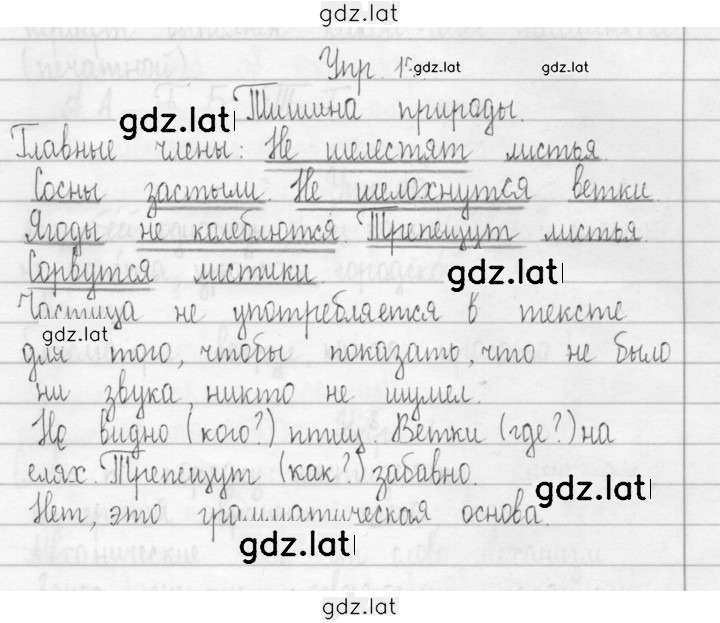 gdz.lat
Упр. gdz.lat gdz.lat
gdz.lat Тишина природы.
Главные члены: Не шелестят листья.
Сосны застыли. Не шелохнутся ветки.
Ягоды не колеблются. Трепещут листья.
Сорвутся листики. gdz.lat
Частица не употребляется в тексте
gdz.lat
для того, чтобы показать, что не было
ни звука, никто не шумел.
Не видно (кого?) птиц. Ветки (где?) на
елях. Трепещут (как?) забавно.
gdz.lat
Нет, это грамматическая основа.
gdz.lat
gdz.lat